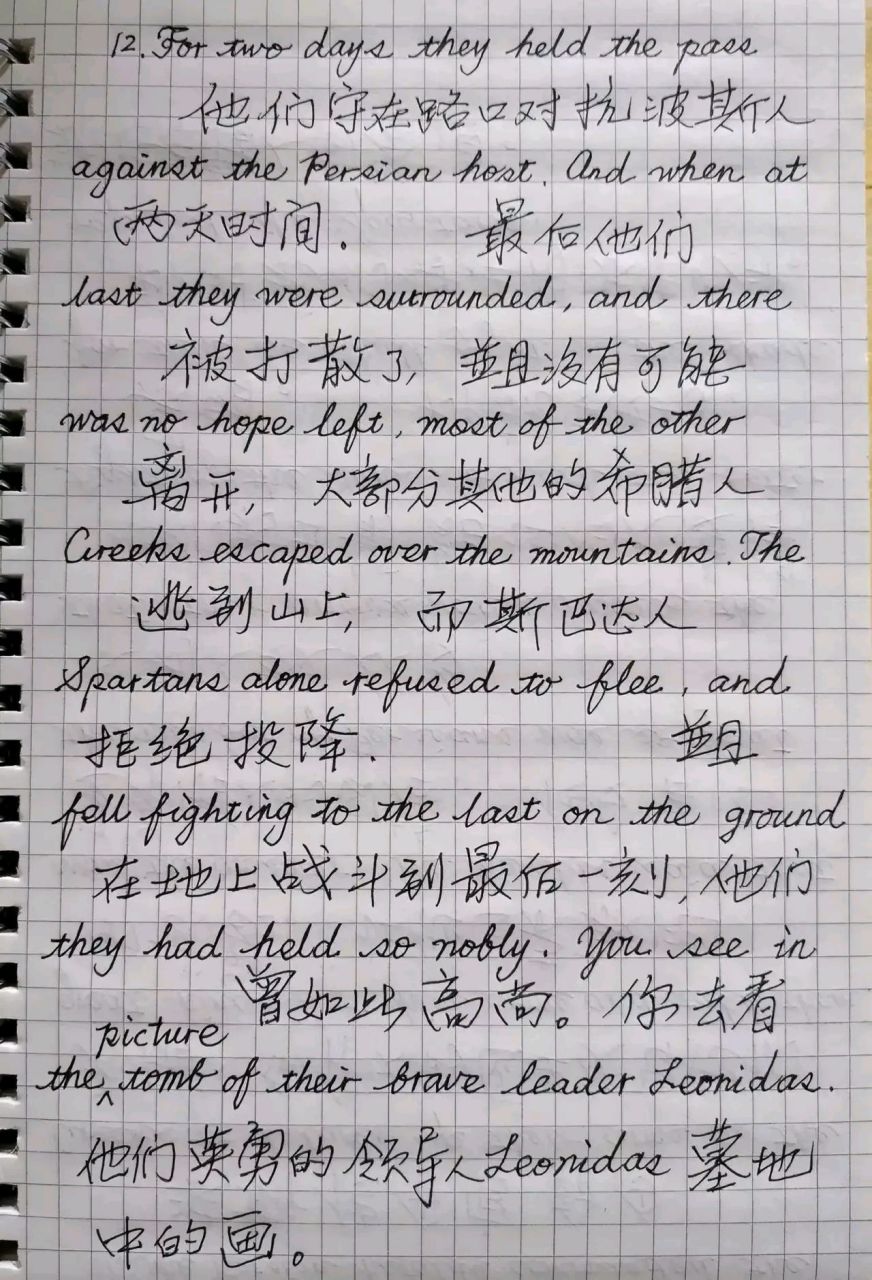 12. For two days they held the pass
他们守在路口对抗波斯人
against the Persian host. And when at
两天时间. 最后他们
last they were surrounded, and there
被打散了, 並且没有可能
was no hope left, most of the other
离开, 大部分其他的希腊人
Greeks escaped over the mountains. The
逃到山上, 而斯巴达人
Spartans alone refused to flee, and
拒绝投降. 並且
fell fighting to the last on the ground
在地上战斗到最后一刻, 他们
they had held so nobly. You see in
曾如此高尚。你去看
picture
the ^ tomb of their brave leader Leonidas.
他们英勇的领导人Leonidas 墓地
中的画。